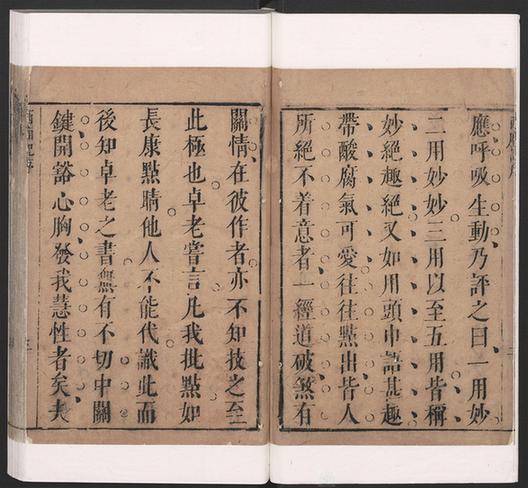 應呼吸生動乃評之曰一用妙
二用妙妙三用以至五用皆稱
妙絕趣絕又如用頭巾語甚趣
帶酸腐氣可愛往往點出皆人
所絕不着意者一經道破煞有
關情在彼作者亦不知技之至
此極也卓老嘗言凡我批點如
長康點睛他人不能代識此而
後知卓老之書無有不切中關
鍵開豁心胸發我慧性者矣夫